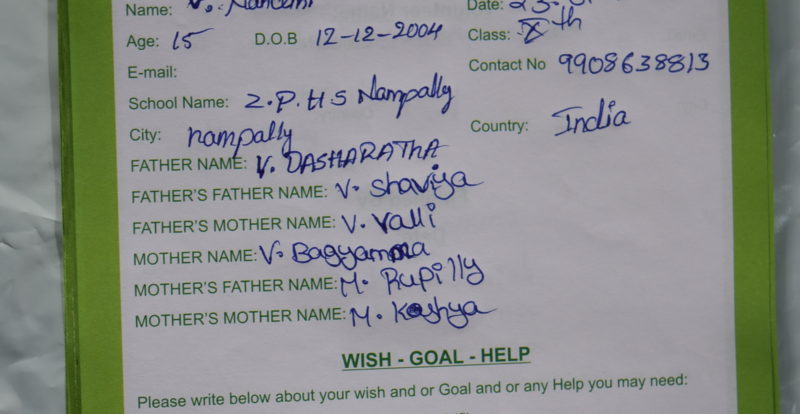 Name: V. Date:
Age: 15 D.O.B 12-12-2004 Class: Xth
E-mail: Contact No 9908638813
School Name: Z.P.H.S Nampally
City: nampally Country: India
FATHER NAME: V. DASHARATHA
FATHER'S FATHER NAME: V. Shaviya
FATHER'S MOTHER NAME: V. Valli
MOTHER NAME: V. Bagyamma
MOTHER'S FATHER NAME: M. Rupilly
MOTHER'S MOTHER NAME: M. Koshya
WISH - GOAL - HELP
Please write below about your wish and or Goal and or any Help you may need: